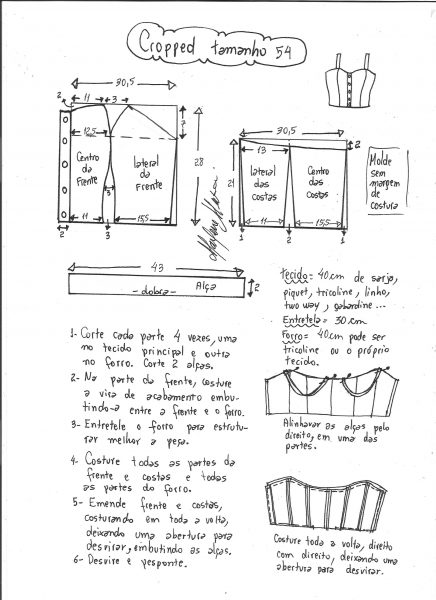 Cropped tamanho 54
30,5
11
3
2
7
12,5
Centro
da
Frente
lateral
da
Frente
28
3
11
15,5
2
3
30,5
13
2
21
lateral
das
costas
Centro
das
costas
11
15,5
1
2
1
Molde
sem
margem
de
costura
43
Alça
-dobra-
2
Tecido= 40cm de sarja,
piquet, tricoline, linho,
two way, gabardine...
Entretela= 30cm
Forro= 40cm pode ser
tricoline ou o próprio
tecido.
1- Corte cada parte 4 vezes, uma
no tecido principal e outra
no forro. Corte 2 alças.
2- Na parte da frente, costure
a vira de acabamento embu-
tindo-a entre a frente e o forro.
3- Entretele o forro para estrutu-
rar melhor a peça.
4- Costure todas as partes da
frente e costas e todas
as partes do forro.
5- Emende frente e costas,
costurando em toda a volta,
deixando uma abertura para
desvirar, embutindo as alças.
6- Desvire e pesponte.
Alinhavar as alças pelo
direito, em uma das
partes.
Costure toda a volta, direito
com direito, deixando uma
abertura para desvirar.